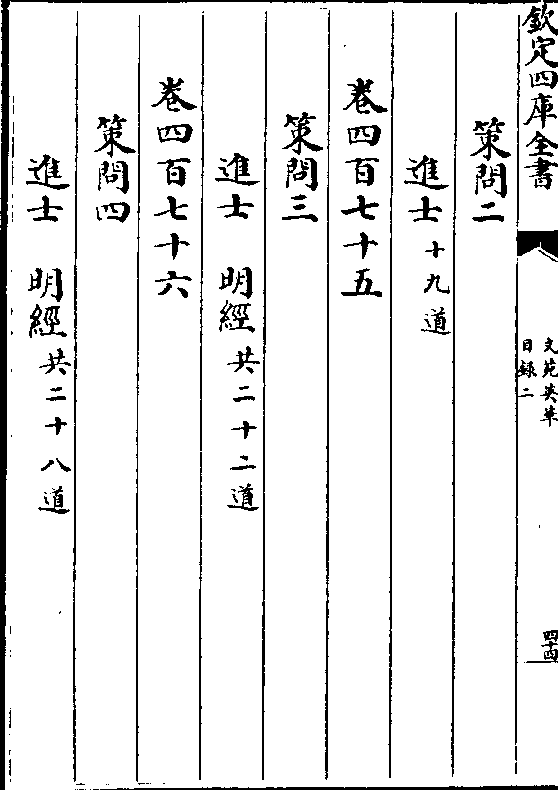 欽定四庫全書
文苑英華
目録二
四十四
策問二
進士十九道
卷四百七十五
策問三
進士 明經共二十二道
卷四百七十六
策問四
進士 明經共二十八道